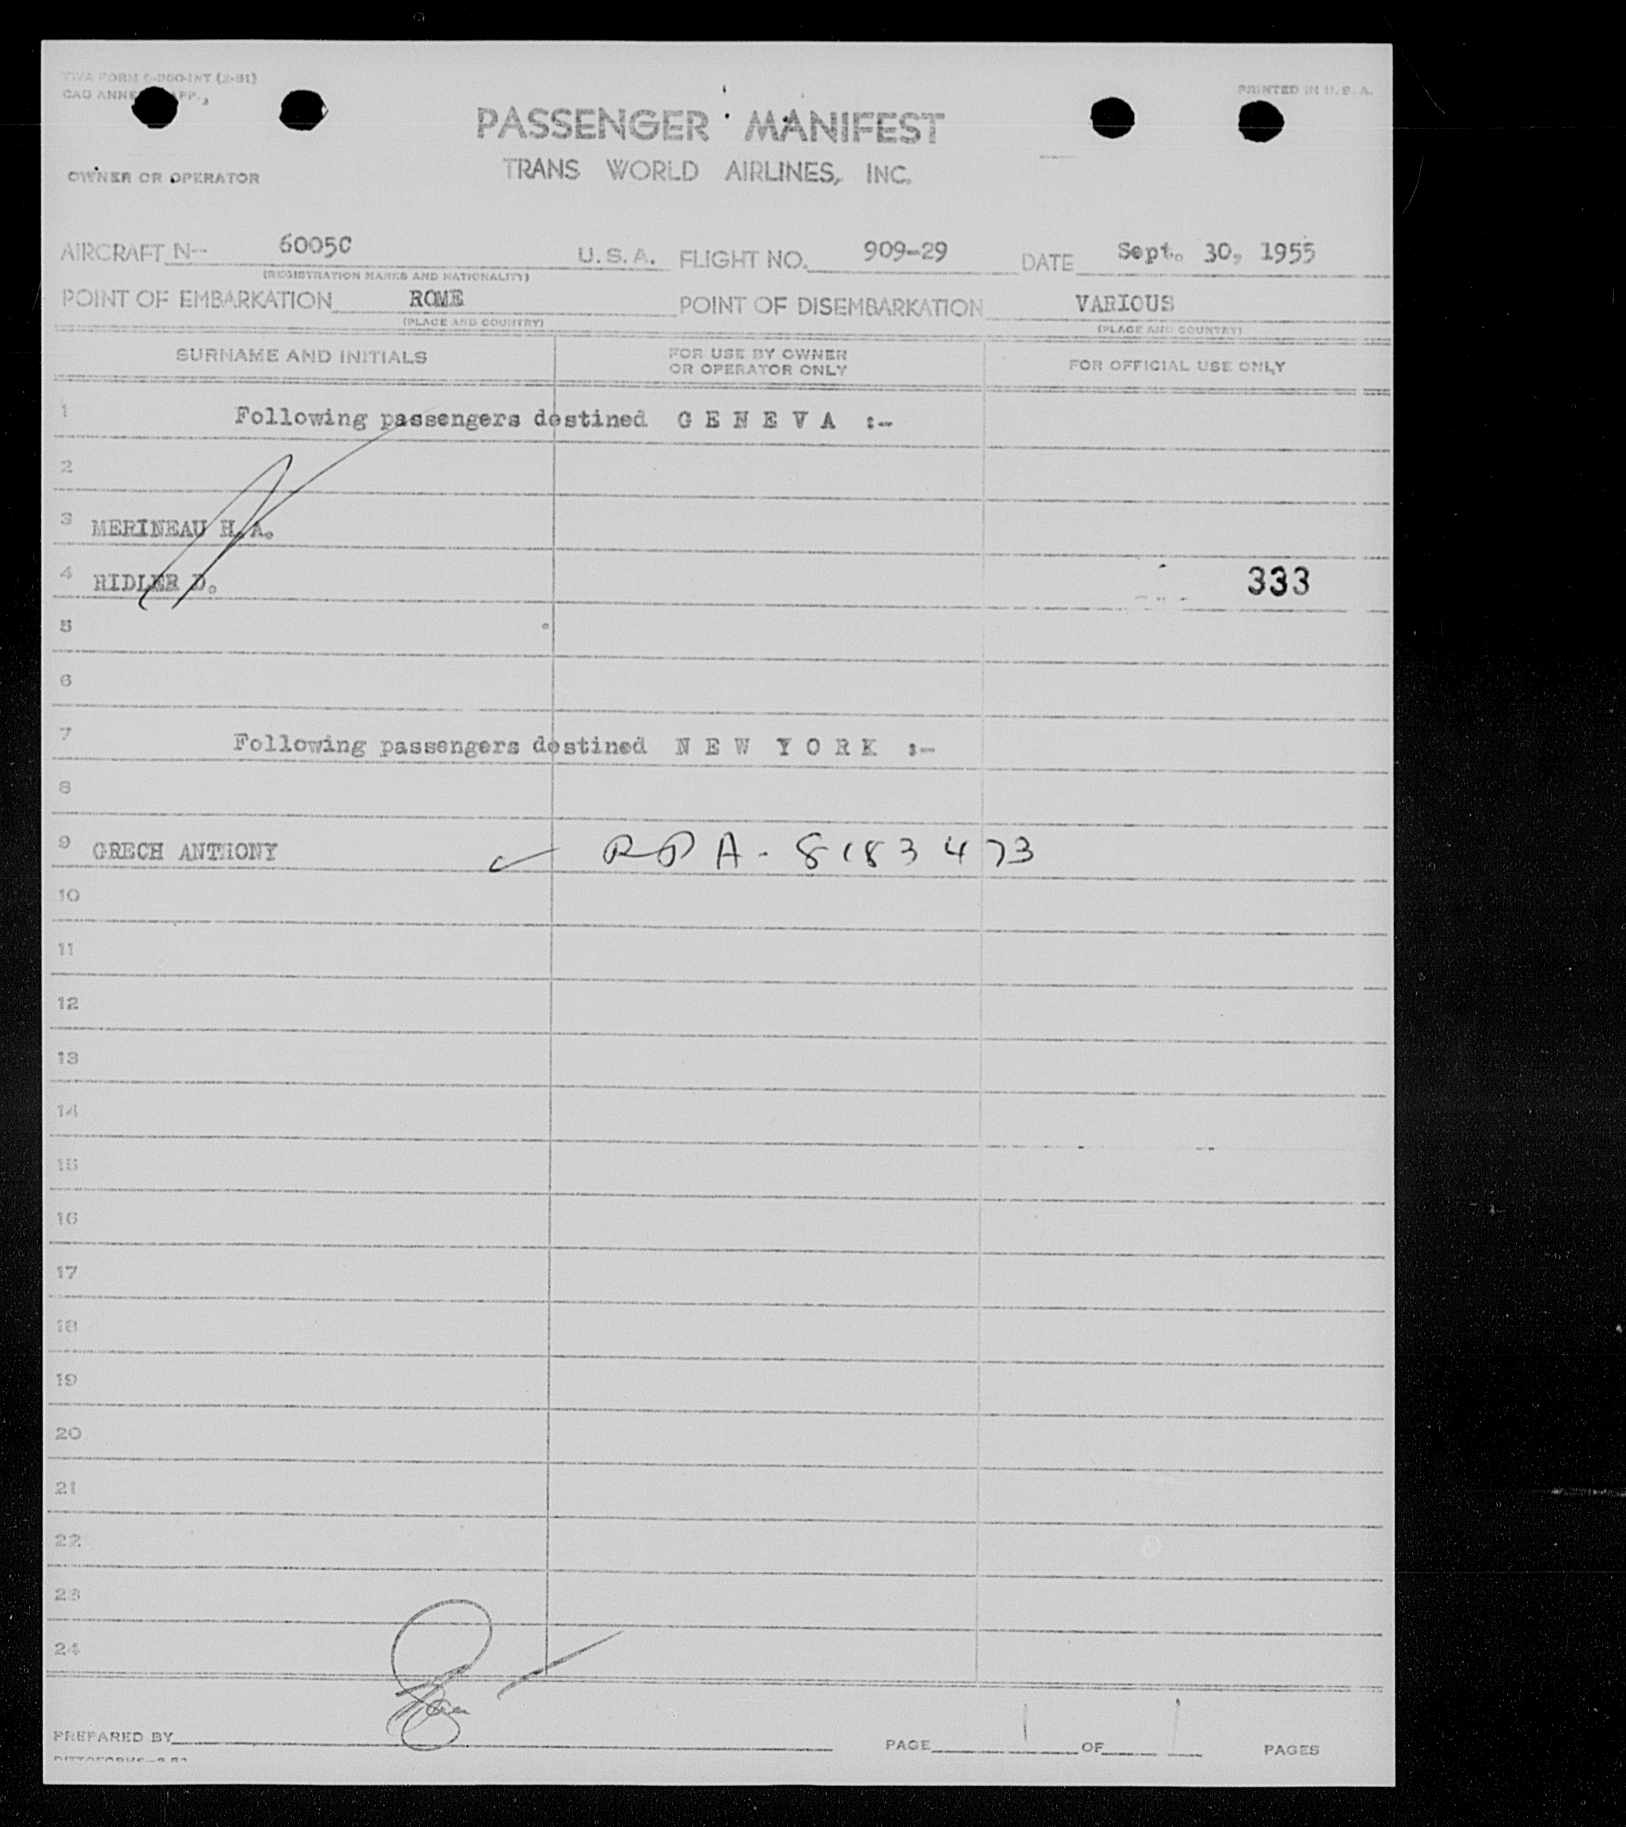 TWA FORM
CAO ANNE APP.,
PRINTED IN U.S.A.
PASSENGER MANIFEST
TRANS WORLD AIRLINES, INC.
OWNER OR OPERATOR
AIRCRAFT N-- 6005C U.S.A. FLIGHT NO. 909-29 DATE Sept. 30, 1955
(REGISTRATION MARKS AND NATIONALITY)
POINT OF EMBARKATION ROME POINT OF DISEMBARKATION VARIOUS
(PLACE AND COUNTRY) (PLACE AND COUNTRY)
SURNAME AND INITIALS FOR USE BY OWNER OR OPERATOR ONLY FOR OFFICIAL USE ONLY
1 Following passengers destined G E N E V A :-
2
3 MERINEAU H.A.
4 RIDLER D. 333
5
6
7 Following passengers destined N E W Y O R K :-
8
9 GRECH ANTHONY RPA-8183473
10
11
12
13
14
15
16
17
18
19
20
21
22
23
24
PREPARED BY PAGE 1 OF 1 PAGES